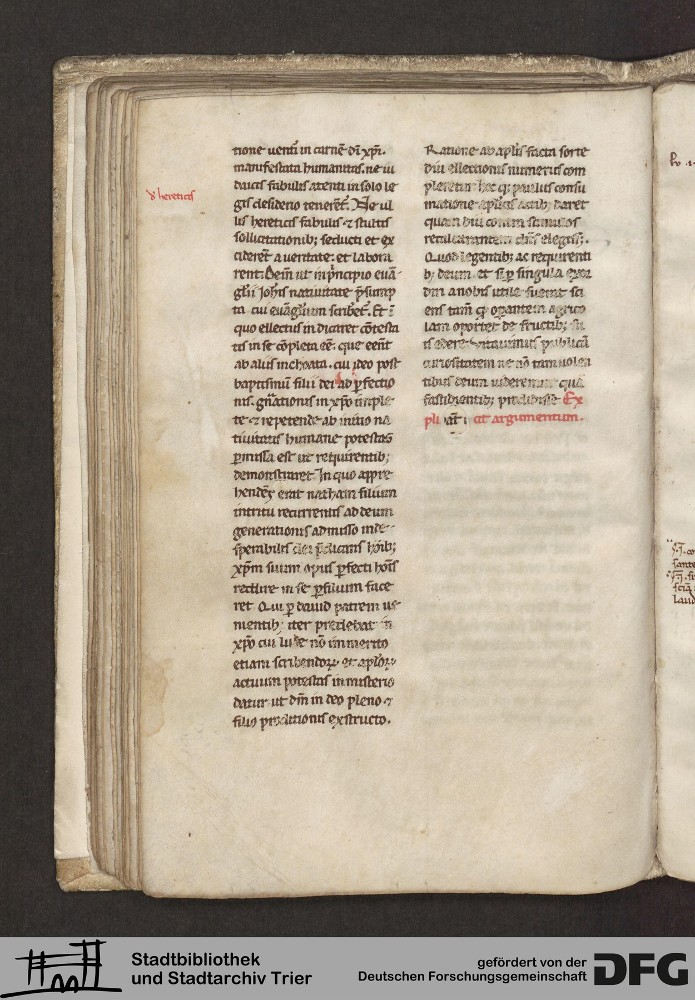 tione uenti᷑ in carnē di xp̄i.
manifestata humanitas. ne iu
daicis fabulis atenti in solo le
gis desiderio tenerent᷑. Ne uł
lis hereticis fabulis ⁊ stultis
sollicitationib; seducti et ex
ciderēt a ueritate: et labora
rent: Dein̄ ut in p̄ncipio euā
glii ioh̄is natiuitate p̄sump
ta. cui euāgłium scriberet᷑. Et ī
quo ellectus in dicaret cōtesta
tis in se cōpleta eē. que eēnt
ab aliis inchoata. cui ideo post
baptismū filii dei ad ꝑfectio
nis. gn̄ationis in xp̄o imple
te ⁊ repetende ab initio na
tiuitatis humane potestas
ꝑmissa est ut requirentib;
demonstraret In quo appre
hendens erat natham filium
intritu recurrentis ad deum
generationis admisso inde
sperabilis dei p̄dicans hoīb;
xp̄m suum opus ꝑfecti hoīs
redire in se ꝑ filium face
ret Qui ꝑ dauid patrem ue
nientib; iter prebebat in
xp̄o cui luce nō inmerito
etiam scribendoꝝ et apłoꝝ
actuum potestas in misterio
datur ut dm̄ in deo pleno ⁊
filio proditionis exstructo.
de hereticis
Ratione ab apłis facta sorte
dn̄i ellectionis numerus com
pleretur hec q; paulus consu
matione apłicis actib; daret
quem diu contra stimulos
recalcitrantem dn̄s elegiss;.
Quod legentib; ac requirenti
b; deum. et si ꝑ singula expe
diri a nobis utile fuerat sci
ens tam̄ qd̓ operantem agrico
lam oporteat de fructib; su
is edere. uitauimus publicā
curiositatem ne nō tam uolen
tibus deum uideremur quā
fastidientib; prodidisse Ex
plicit argumentum.
Stadtbibliothek
und Stadtarchiv Trier
gefördert von der
Deutschen Forschungsgemeinschaft
DFG